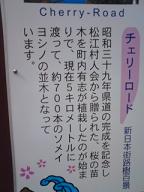 Cherry-Road
チェリーロード
新日本街路樹百景
昭和三十九年県道の完成を記念し
松江村人会から贈られた、桜の苗
木を町内有志が植栽したのが始ま
りで、現在5キロメートルに
渡って、約700本のソメイ
ヨシノの並木となって
います。